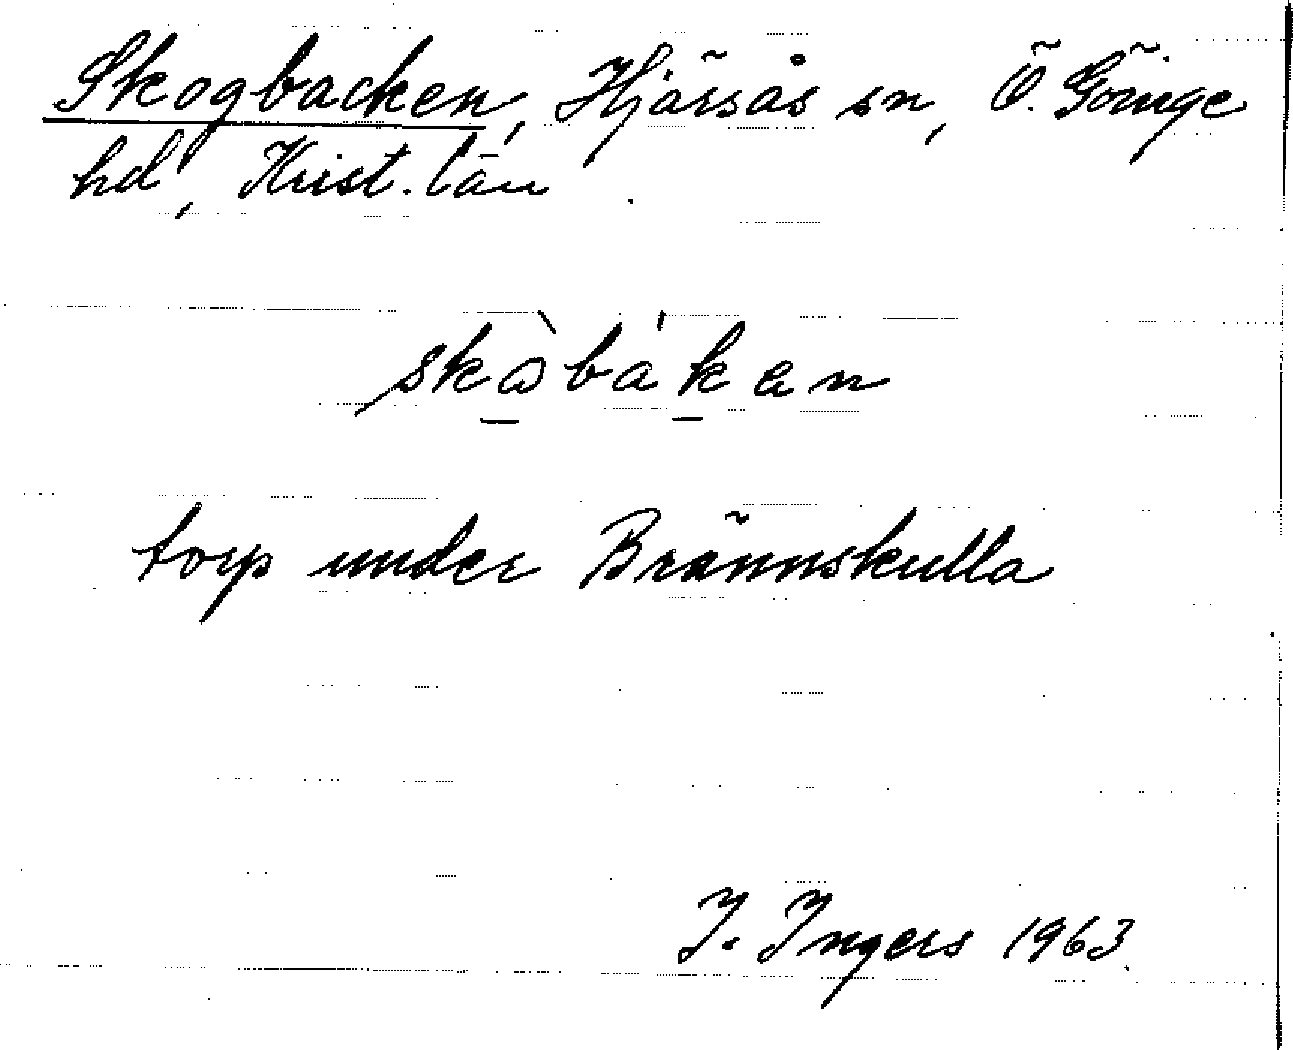 Skogbacken, Hjärsås sn, Ö. Göinge
hd, Krist. län
skòbákan
torp under Brännskulla
I. Ingers 1963